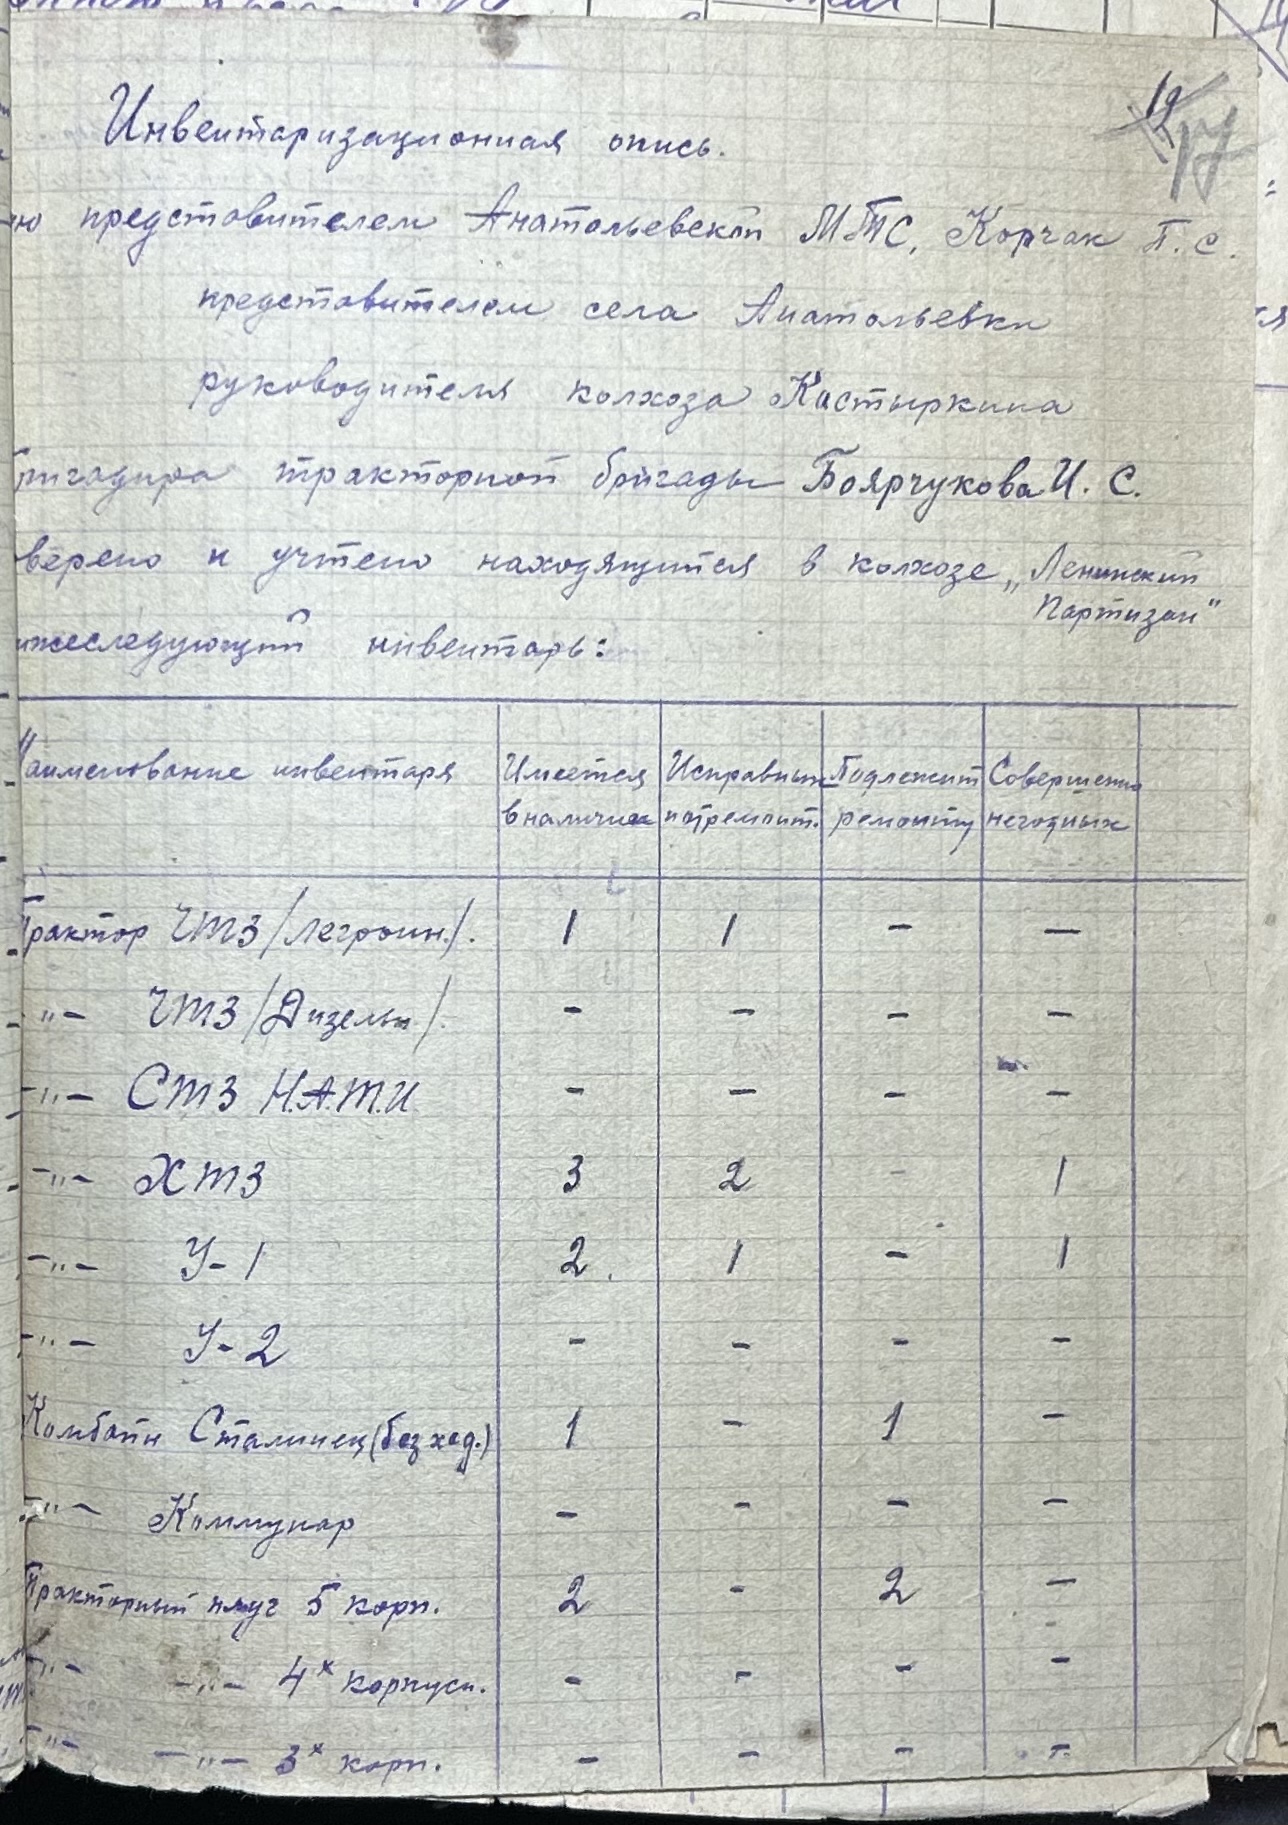 Инвентаризационная опись.
представителем Анатольевской МТС, Корчак П. С.
представителем села Анатольевки
руководителя колхоза Кастыркина
бригадира тракторной бригады Боярчукова И. С.
верено и учтено находящийся в колхозе „Ленинский
Партизан“
ижеследующий инвентарь:
Наименование инвентаря | Имеется в наличии | Исправных потремонт. | Подлежит ремонту | Совершенно негодных
Трактор ЧТЗ /легроин./. | 1 | 1 | – | –
–„– ЧТЗ /Дизельн/. | – | – | – | –
–„– СТЗ Н.А.Т.И. | – | – | – | –
–„– ХТЗ | 3 | 2 | – | 1
–„– У-1 | 2 | 1 | – | 1
–„– У-2 | – | – | – | –
Комбайн Сталинец (без ход.) | 1 | – | 1 | –
–„– Коммунар | – | – | – | –
Тракторный плуг 5 корп. | 2 | – | 2 | –
–„– –„– 4х корпусн. | – | – | – | –
–„– –„– 3х корп. | – | – | – | –